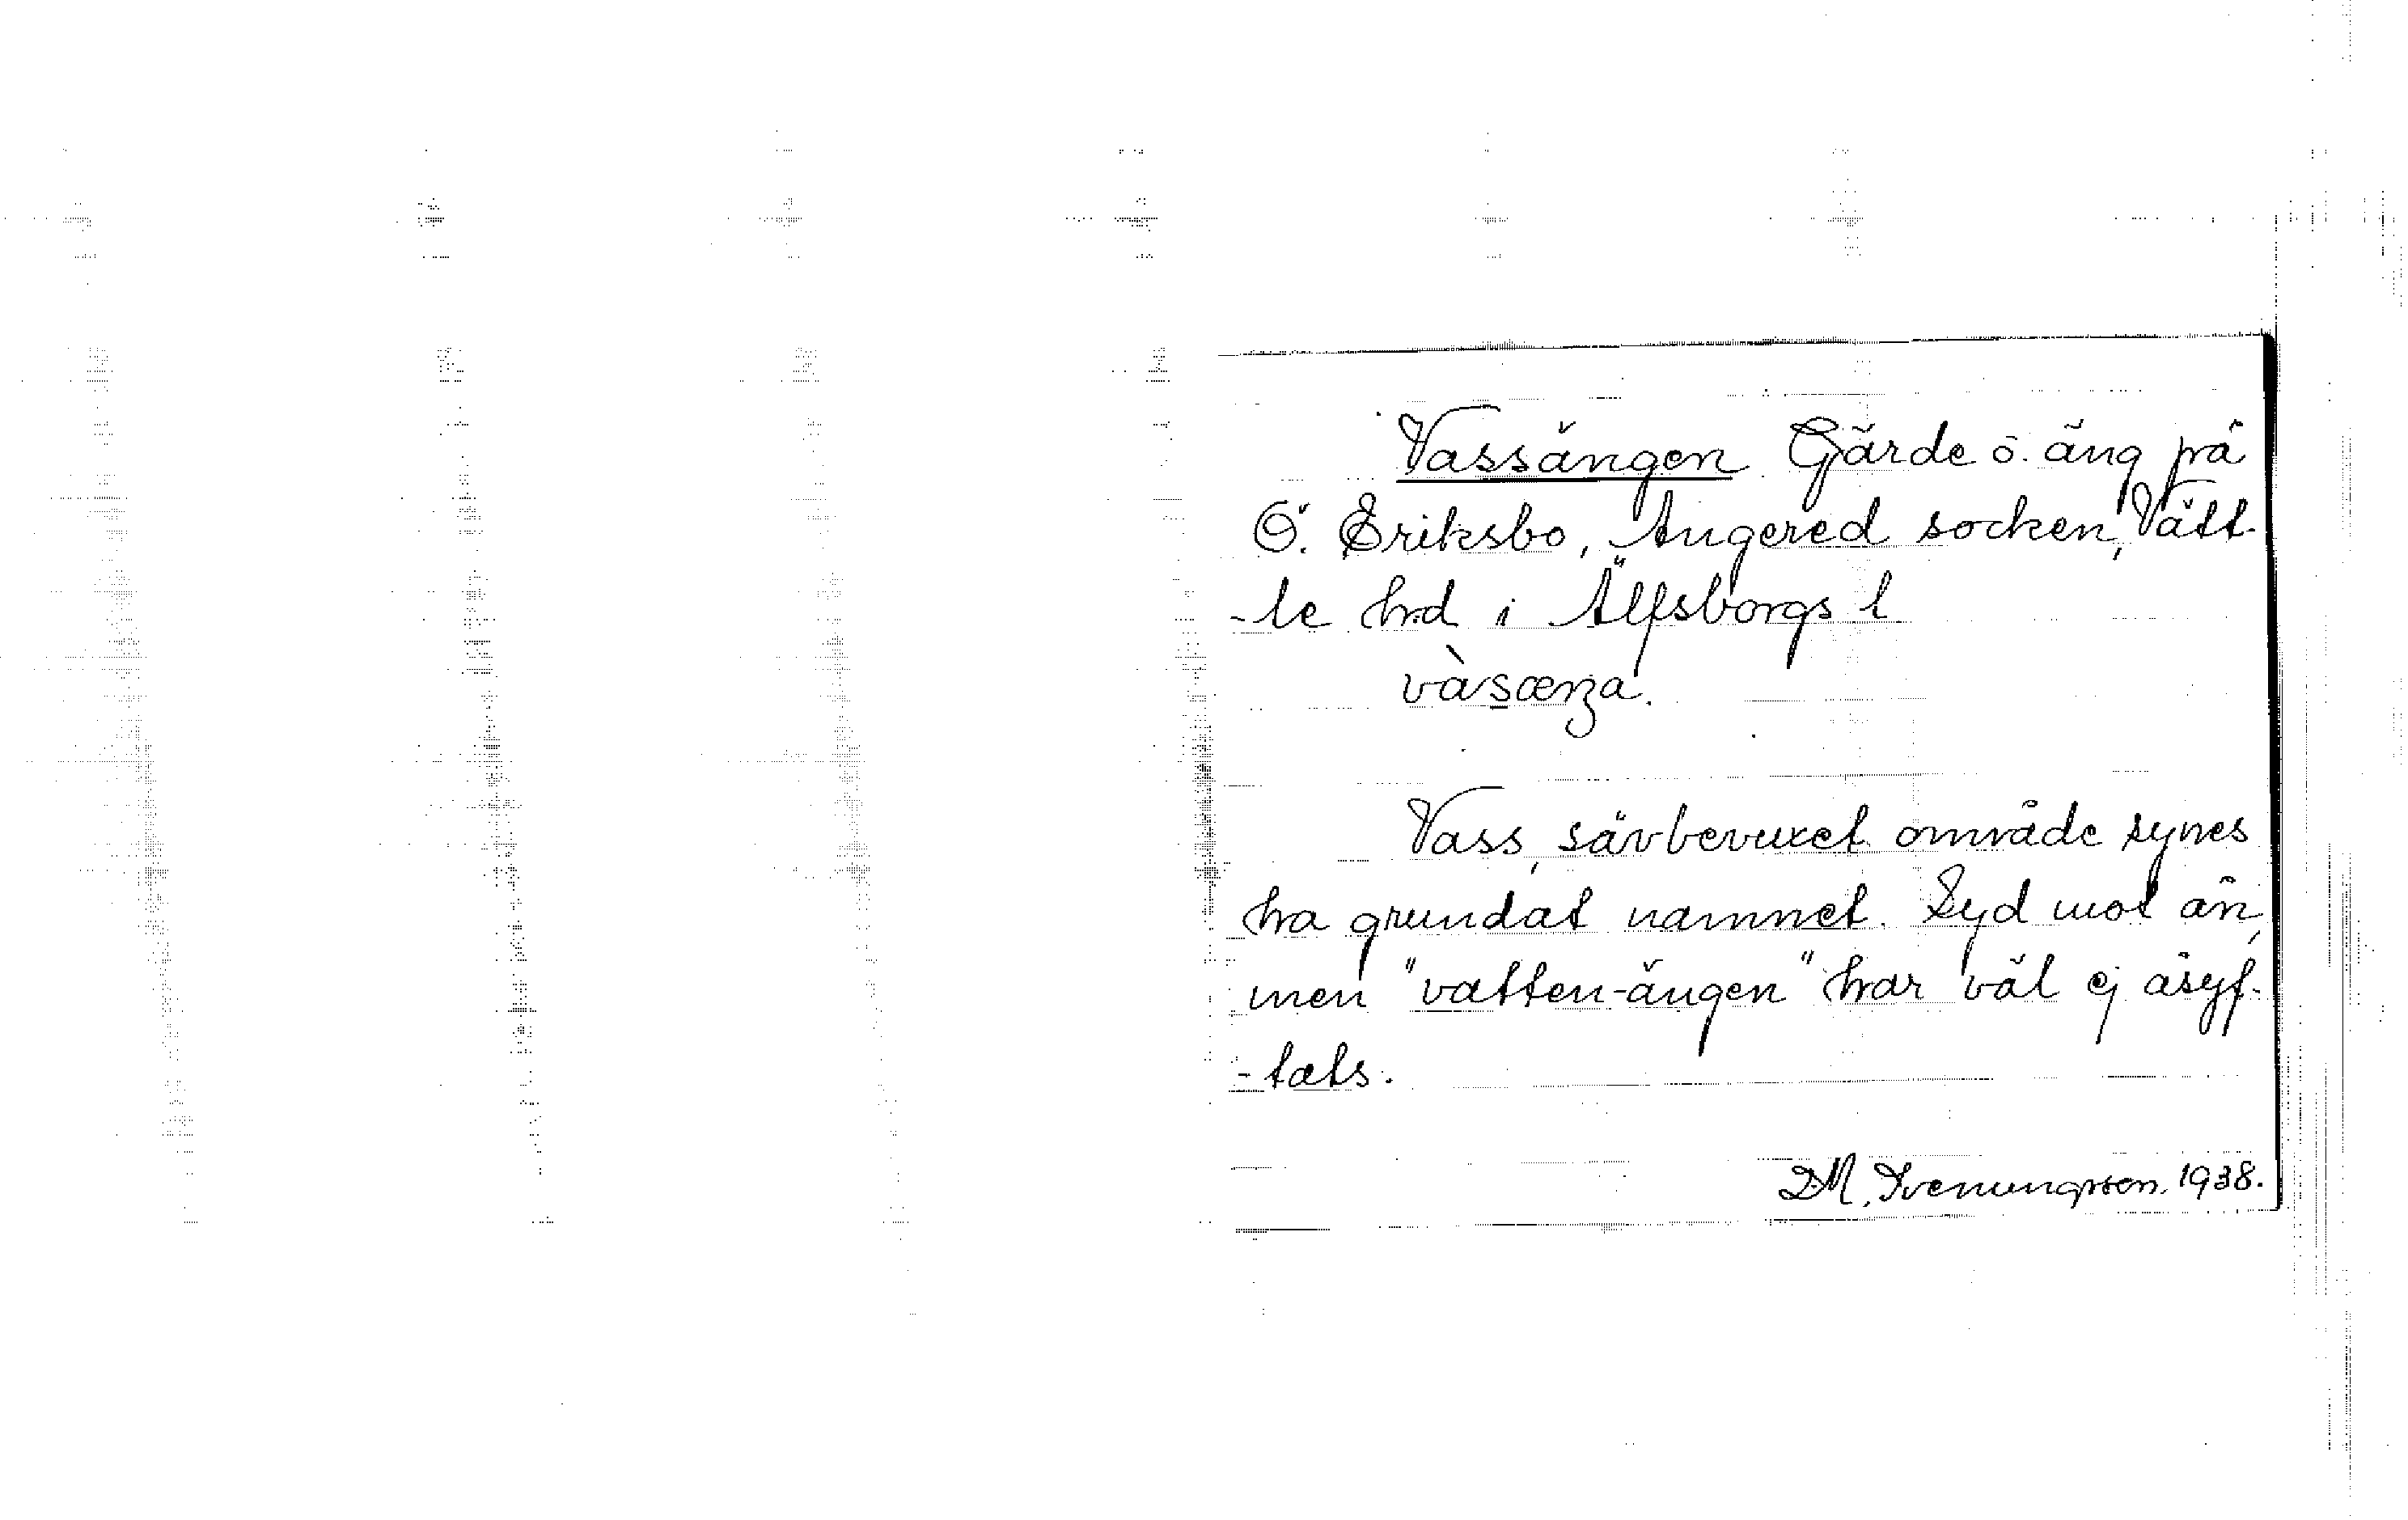 Vassängen Gärde o. äng på
Ö. Eriksbo, Angered socken, Vätt-
-le hrd i Älfsborgs l
vàsænʒa.
Vass, sävbevuxet område synes
ha grundat namnet. Syd mot ån,
men "vatten-ängen" har väl ej åsyf-
-tats.
D.M. Svenungsson 1938.